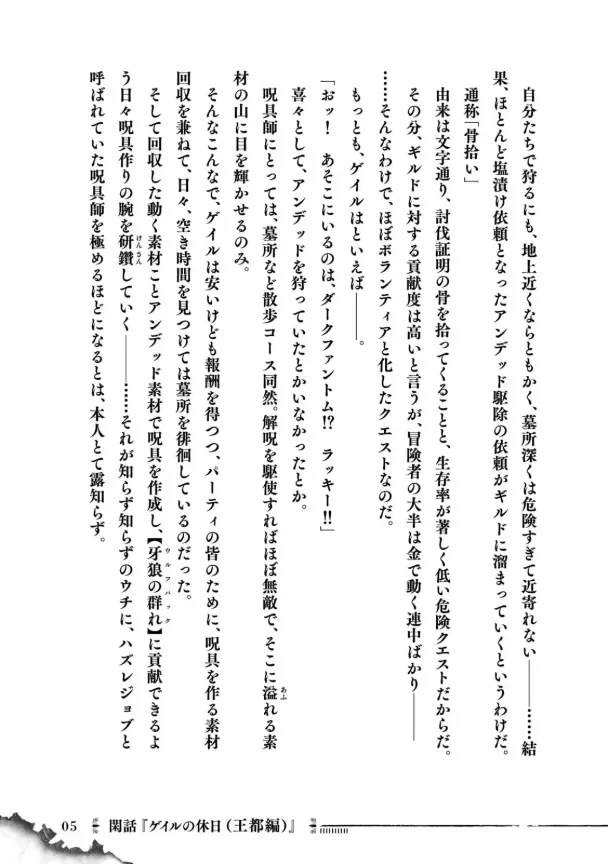 自分たちで狩るにも、地上近くならともかく、墓所深くは危険すぎて近寄れない――……結
果、ほとんど塩漬け依頼となったアンデッド駆除の依頼がギルドに溜まっていくというわけだ。
通称「骨拾い」
由来は文字通り、討伐証明の骨を拾ってくることと、生存率が著しく低い危険クエストだからだ。
その分、ギルドに対する貢献度は高いと言うが、冒険者の大半は金で動く連中ばかり――
……そんなわけで、ほぼボランティアと化したクエストなのだ。
もっとも、ゲイルはといえば――。
「おッ！　あそこにいるのは、ダークファントム!?　ラッキー!!」
喜々として、アンデッドを狩っていたとかいなかったとか。
呪具師にとっては、墓所など散歩コース同然。解呪を駆使すればほぼ無敵で、そこに溢れる素
あふ
材の山に目を輝かせるのみ。
そんなこんなで、ゲイルは安いけども報酬を得つつ、パーティの皆のために、呪具を作る素材
回収を兼ねて、日々、空き時間を見つけては墓所を徘徊しているのだった。
そして回収した動く素材ことアンデッド素材で呪具を作成し、【牙狼の群れ】に貢献できるよ
ウルフパック
う日々呪具作りの腕を研鑽していく――……それが知らず知らずのウチに、ハズレジョブと
けんさん
呼ばれていた呪具師を極めるほどになるとは、本人とて露知らず。
05　閑話『ゲイルの休日（王都編）』